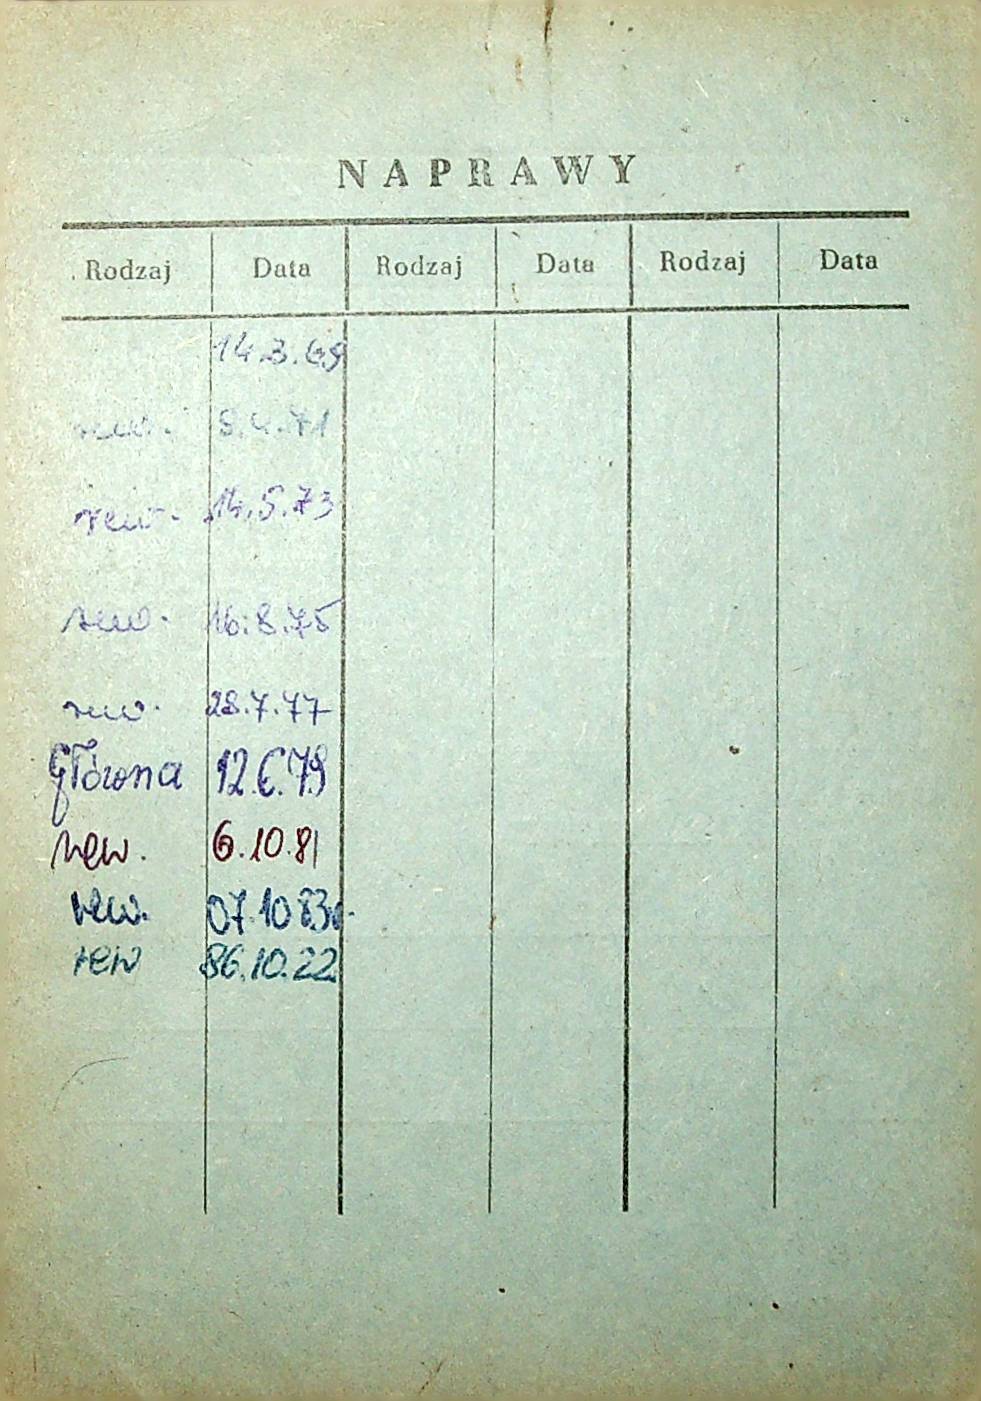 NAPRAWY
Rodzaj Data Rodzaj Data Rodzaj Data
14.3.69
rew. 8.4.71
rew. 14.5.73
rew. 16.8.75
rew. 28.7.77
główna 12.6.79
rew. 6.10.81
rew. 07.10 83r.
rew 86.10.22